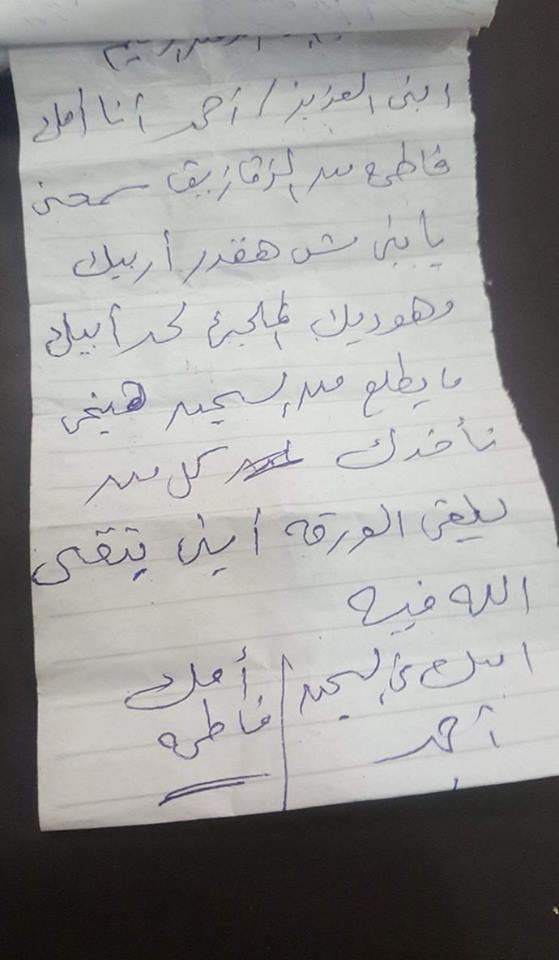 بسم الله الرحمن الرحيم
ابنى العزيز / أحمد أنا أمك
فاطمه من الزقازيق سمحنى
يا بنى مش هقدر أربيك
وهوديك الملجئ لحد أبيك
ما يطلع من السجن هيجى
تأخدك كل من
يلقى الورقه أبنى يتقى
الله فيه
ابنك فى السجن / أمك
أحمد / فاطمه